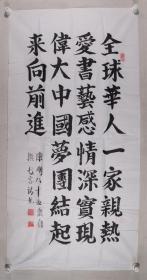 全球華人一家親熱
愛書藝感情深實現
偉大中國夢團結起
來向前進